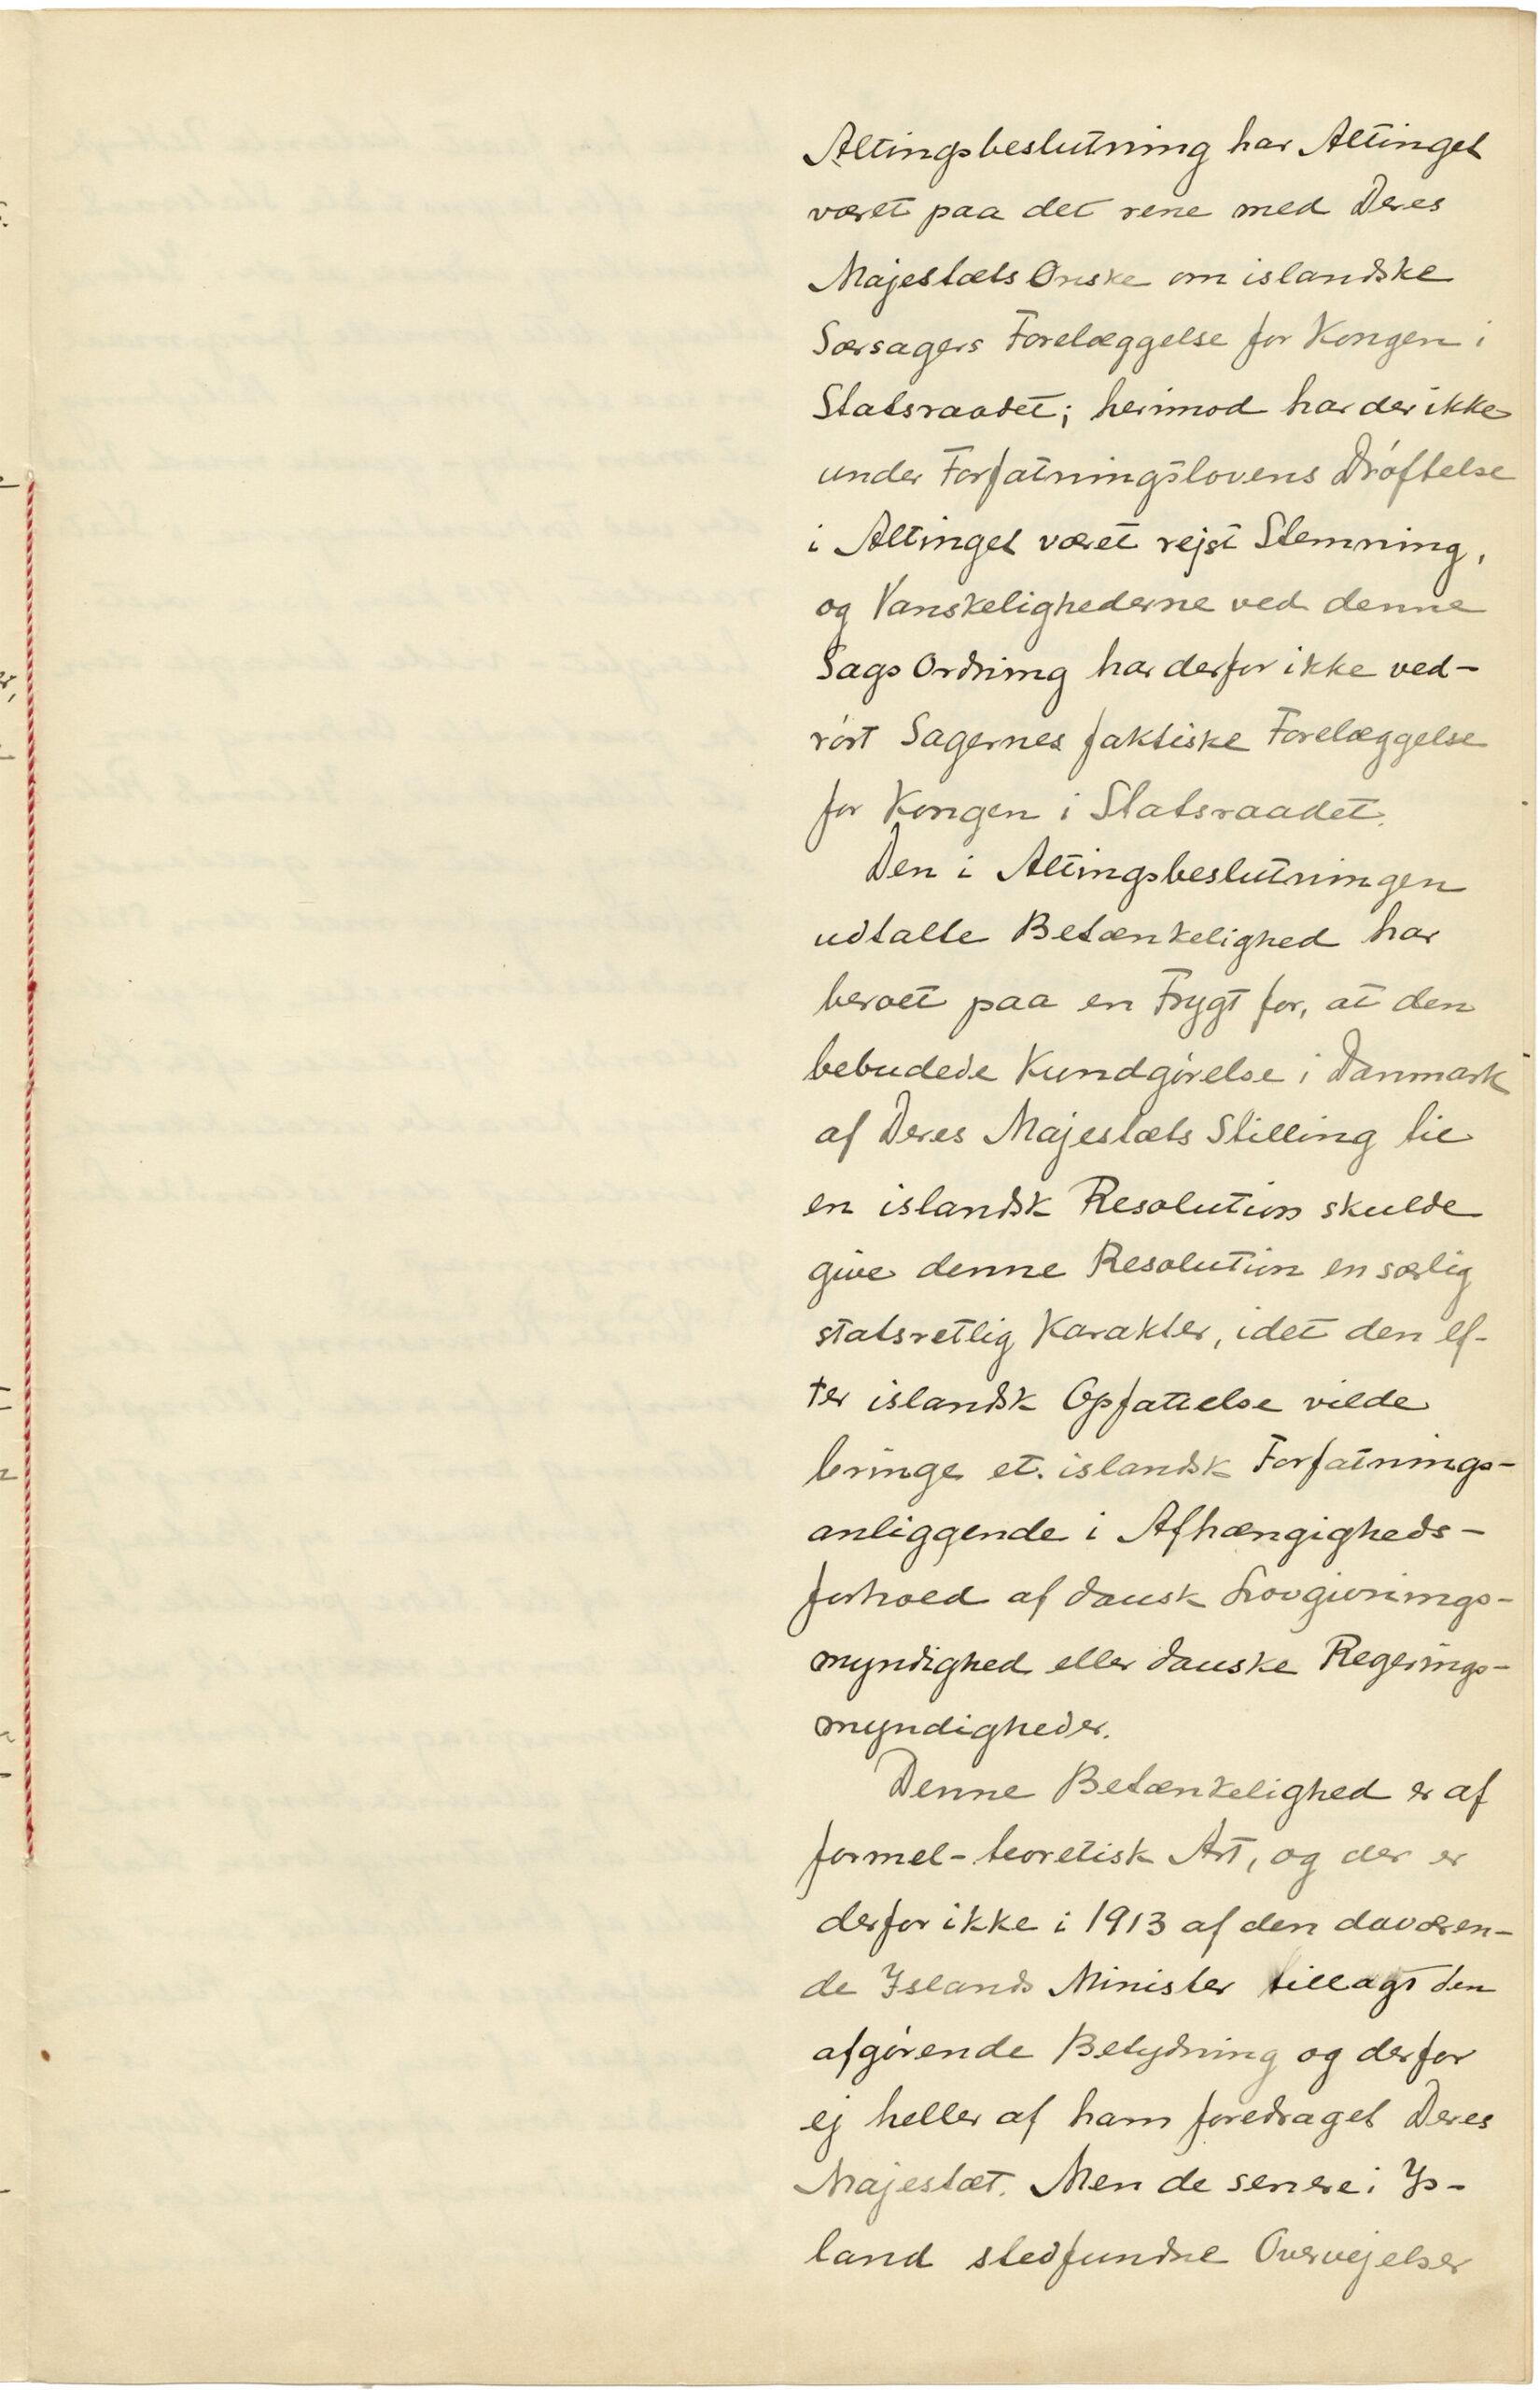 Altingsbeslutning har Altinget
været paa det rene med Deres
Majestæts Ønske om islandske
Særsagers Forelæggelse for Kongen i
Statsraadet; herimod har der ikke
under Forfatningslovens Drøftelse
i Altinget været rejst Stemning,
og Vanskelighederne ved denne
Sags Ordning har derfor ikke ved-
rørt Sagernes faktiske Forelæggelse
for Kongen i Statsraadet.
Den i Altingsbeslutningen
udtalte Betænkelighed har
beroet paa en Frygt for, at den
bebudede Kundgørelse i Danmark
af Deres Majestæts Stilling til
en islandsk Resolution skulde
give denne Resolution en særlig
statsretlig Karakter, idet den ef-
ter islandsk Opfattelse vilde
bringe et islandsk Forfatnings-
anliggende i Afhængigheds-
forhold af dansk Lovgivnings-
myndighed eller danske Regerings-
myndigheder.
Denne Betænkelighed er af
formel-teoretisk Art, og der er
derfor ikke i 1913 af den daværen-
de Islands Minister tillagt den
afgørende Betydning og derfor
ej heller af ham foredraget Deres
Majestæt. Men de senere i Is-
land stedfundne Overvejelser